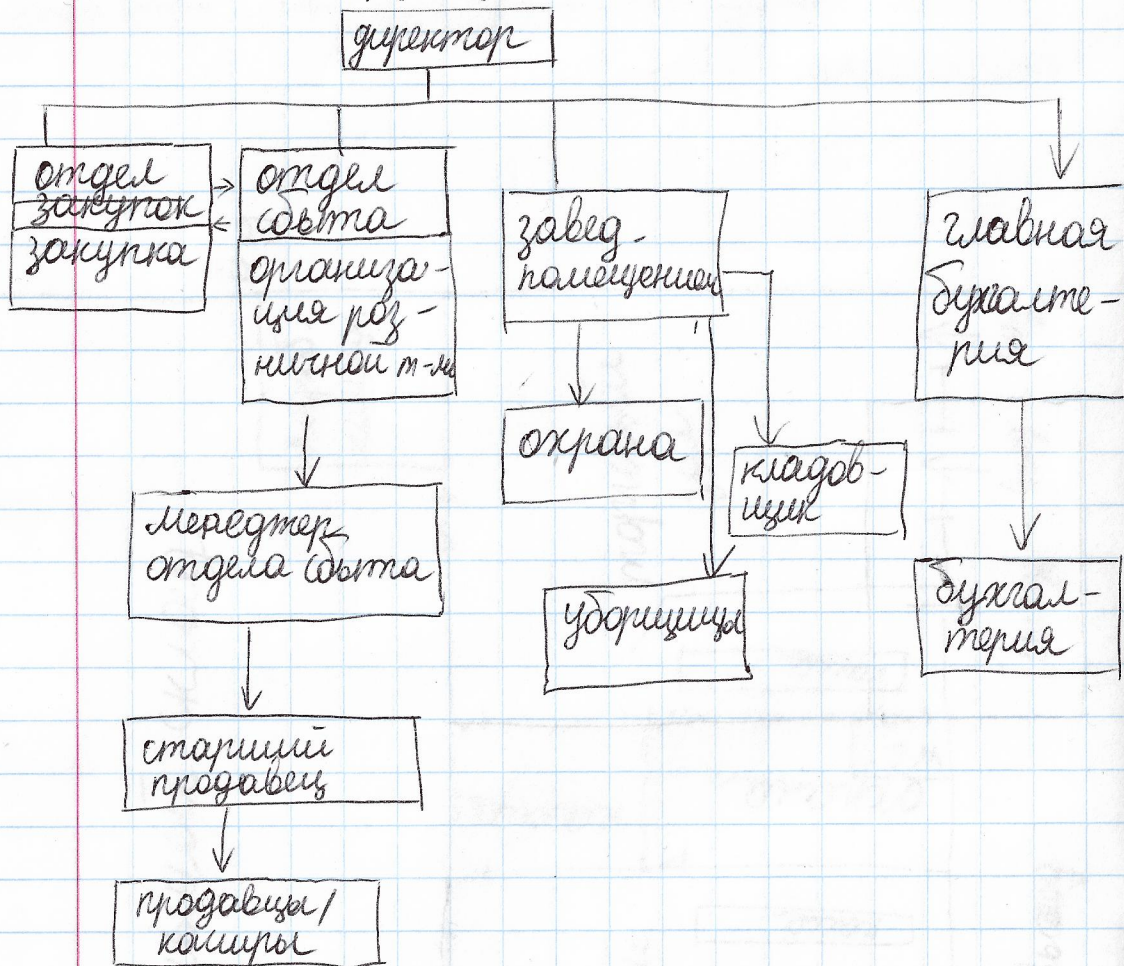 директор
отдел
закупок
закупка
отдел
сбыта
организа-
ция роз-
ничной т-ли
завед.
помещением
главная
бухгалте-
рия
охрана
кладов-
щик
менеджер
отдела сбыта
уборщицы
бухгал-
терия
старший
продавец
продавцы/
кассиры